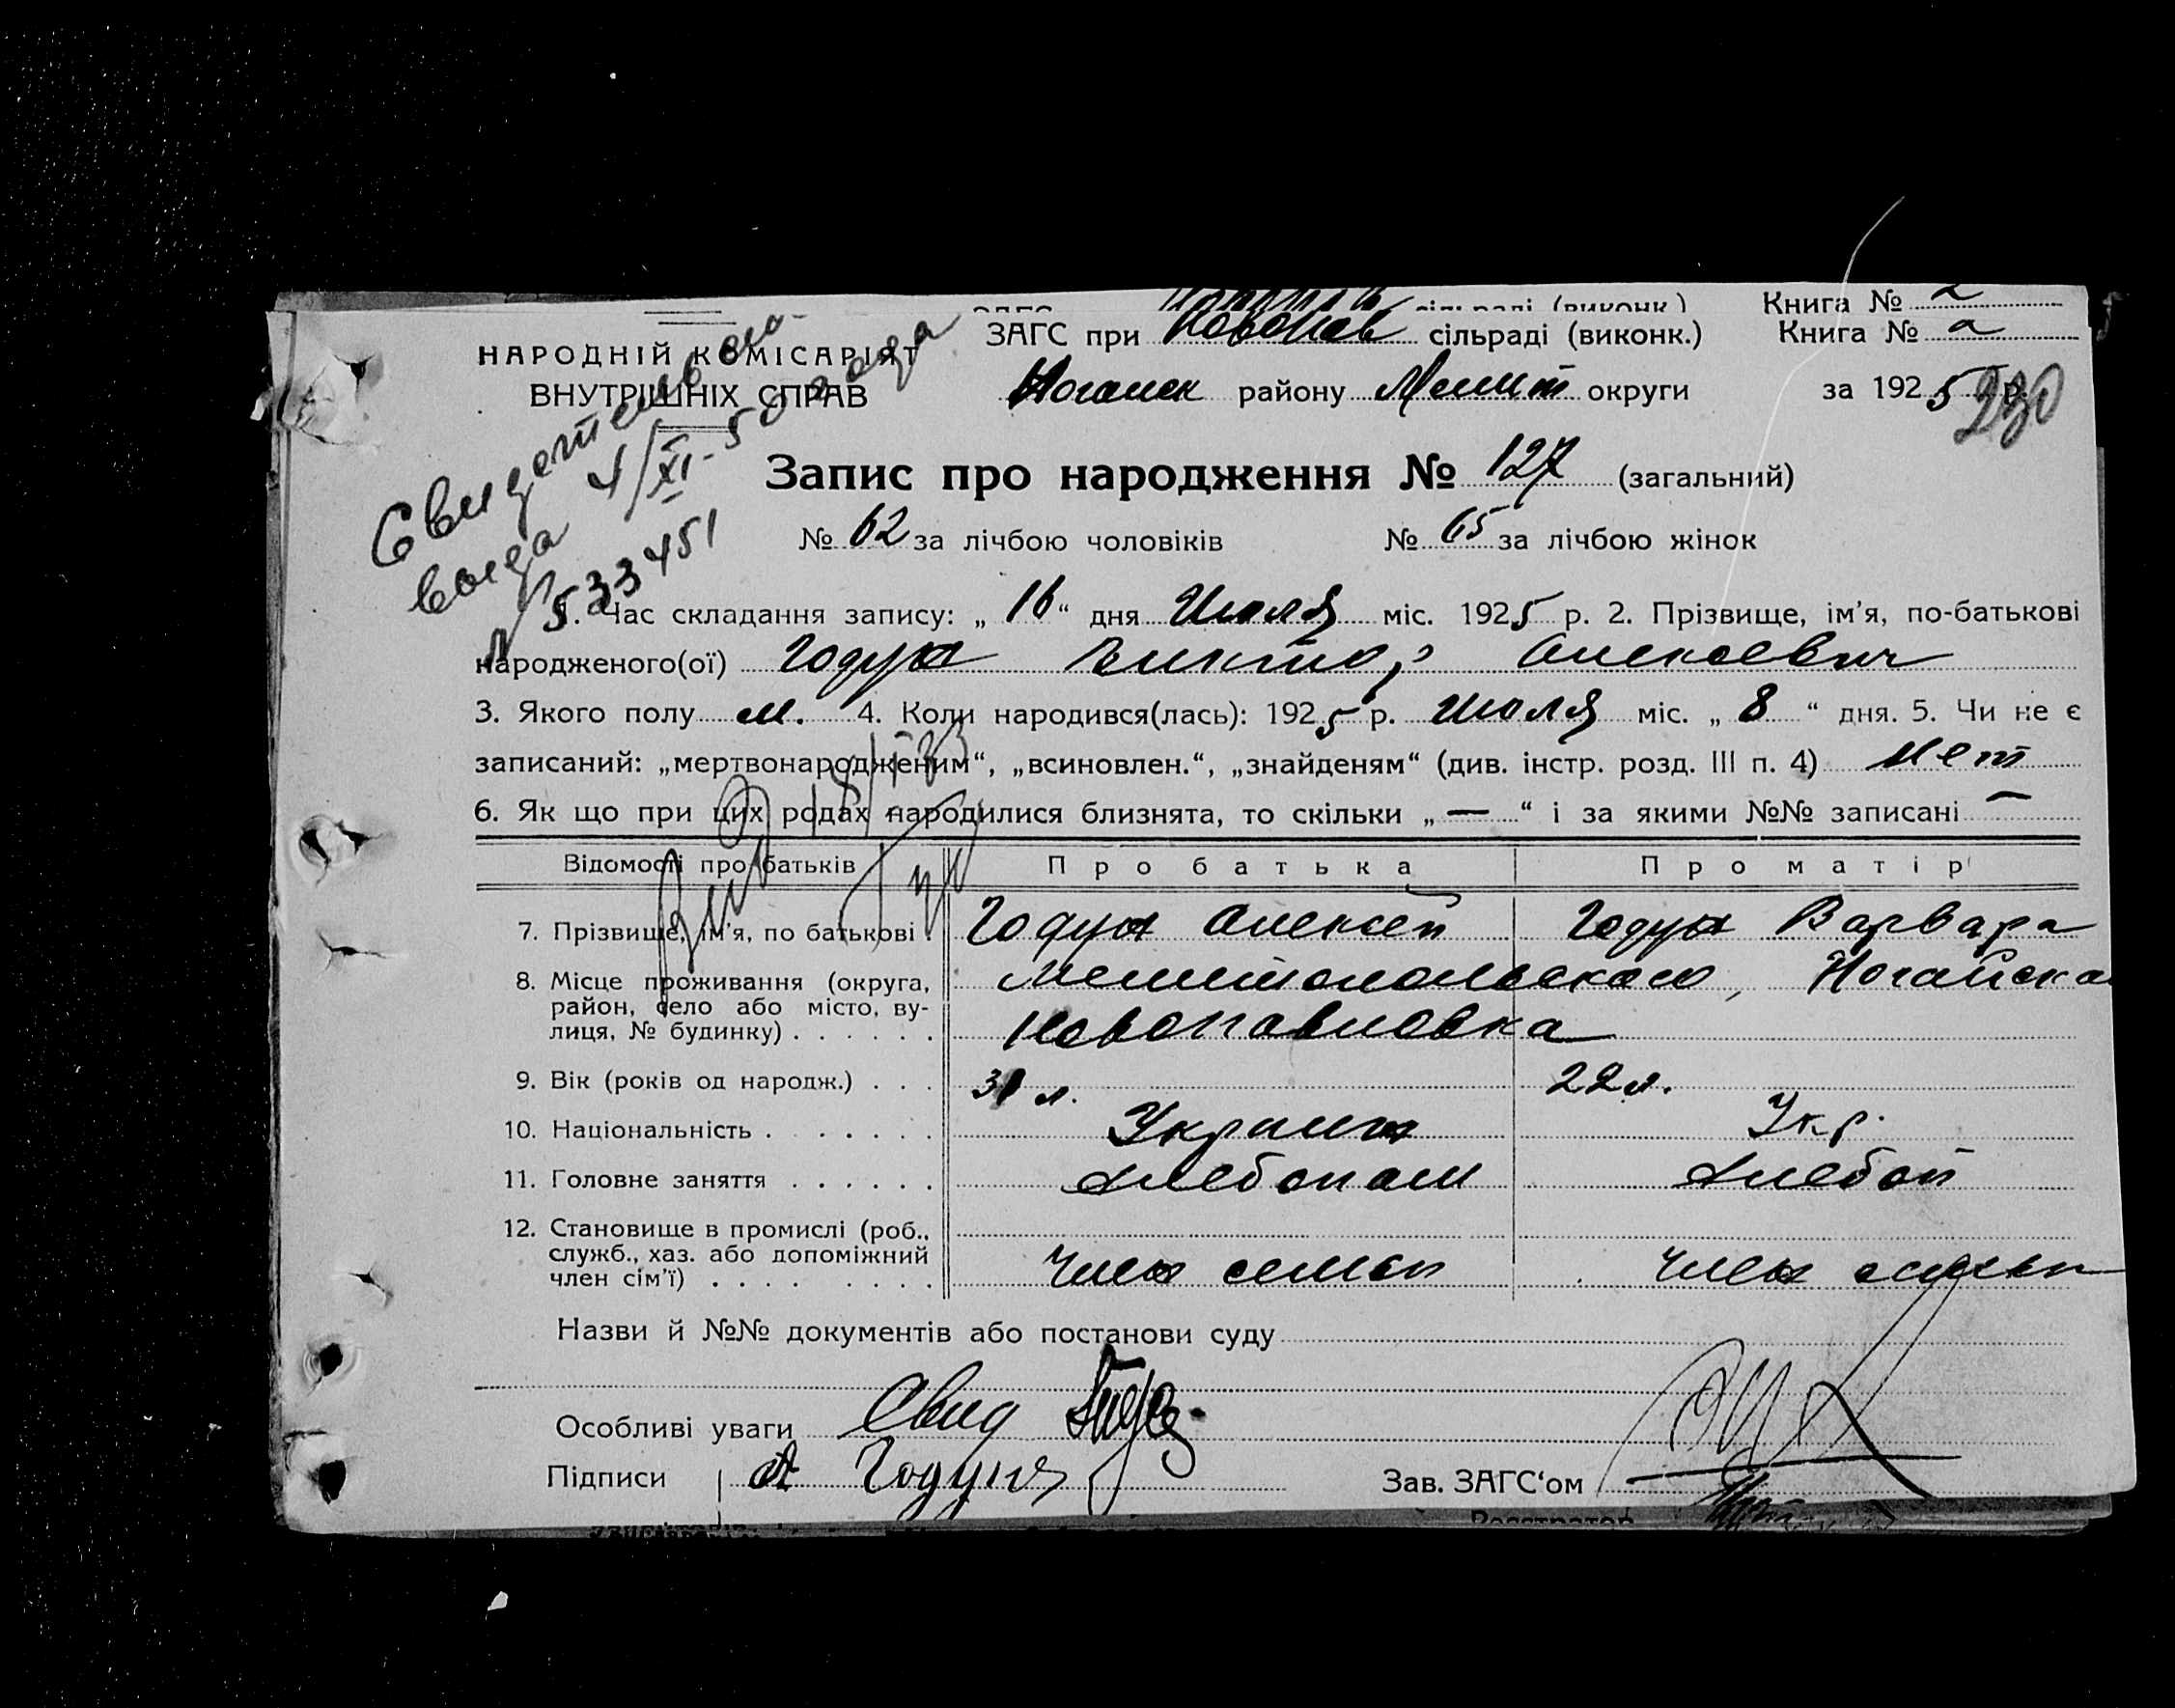 Книга №
ЗАГС при Новопав сільраді (виконк.) Книга № а
НАРОДНІЙ КОМІСАРІЯТ
ВНУТРІШНІХ СПРАВ
Ногайск району Мелит округи за 1925 р.
230
Свидетельство
выда 4/XI-50 года
№ 533451
Запис про народження № 127 (загальний)
№ 62 за лічбою чоловіків № 65 за лічбою жінок
1. Час складання запису: „ 16 “ дня Июля міс. 1925 р. 2. Прізвище, ім'я, по-батькові
народженого(ої) Годун Виктор Алексеевич
3. Якого полу м. 4. Коли народився(лась): 1925 р. Июля міс. „ 8 “ дня. 5. Чи не є
записаний: „мертвонародженим“, „всиновлен.“, „знайденям“ (див. інстр. розд. III п. 4) Нет
6. Як що при цих родах народилися близнята, то скільки „ — “ і за якими №№ записані —
Відомості про батьків Про батька Про матір
7. Прізвище, ім'я, по батькові . Годун Алексей Годун Варвара
8. Місце проживання (округа, Мелитопольского, Ногайска
район, село або місто, ву-
лиця, № будинку) . . . . . . Новопавловка
9. Вік (років од народж.) . . . 31 л. 22 л.
10. Національність . . . . . . . Украин Укр.
11. Головне заняття . . . . . . Хлебопаш Хлебоп
12. Становище в промислі (роб.,
служб., хаз. або допоміжний
член сім'ї) . . . . . . . . . Член семьи Член семьи
Назви й №№ документів або постанови суду
Особливі уваги Свид
Підписи А Годун Зав. ЗАГС‘ом